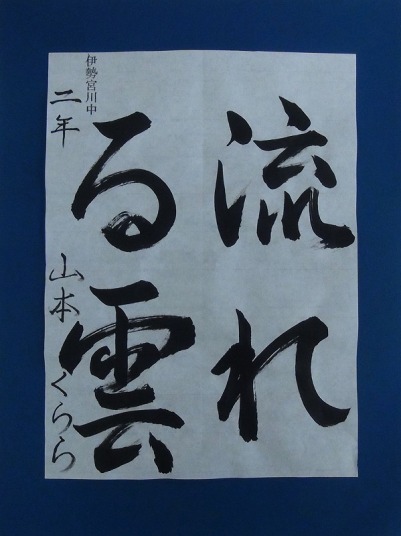 流れ
る雲
伊勢宮川中
二年 山本くらら